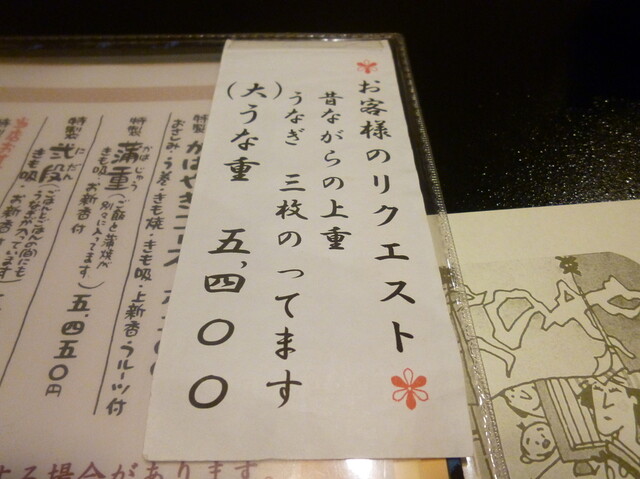 お客様のリクエスト
昔ながらの上重
うなぎ 三枚のってます
(大)うな重 五,四〇〇
特製
かばやきコース
おさしみ・う巻・きも焼・きも吸・上新香・フルーツ付
特製 蒲重
かば じゅう
(ご飯と蒲焼が
別々に入ってます。)
きも吸・お新香付
五,四五〇円
特製 弐段
に だん
(ごはんとごはんの間にも
うなぎが入っています)
きも吸・お新香
する場合があります。